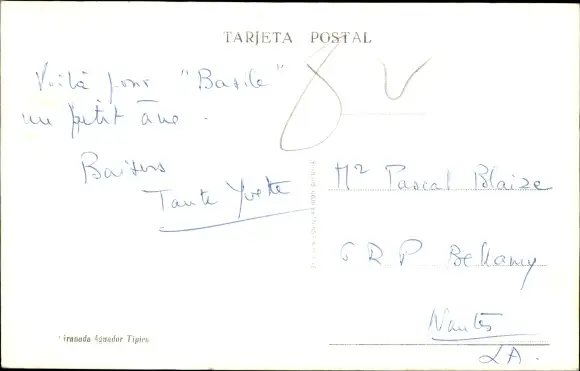 TARJETA POSTAL
Voilà pour "Basile"
un petit âne.
Baisers
Tante Yvette
Mr Pascal Blaize
6 R P Bellamy
Nantes
LA.
Granada Aguador Típico